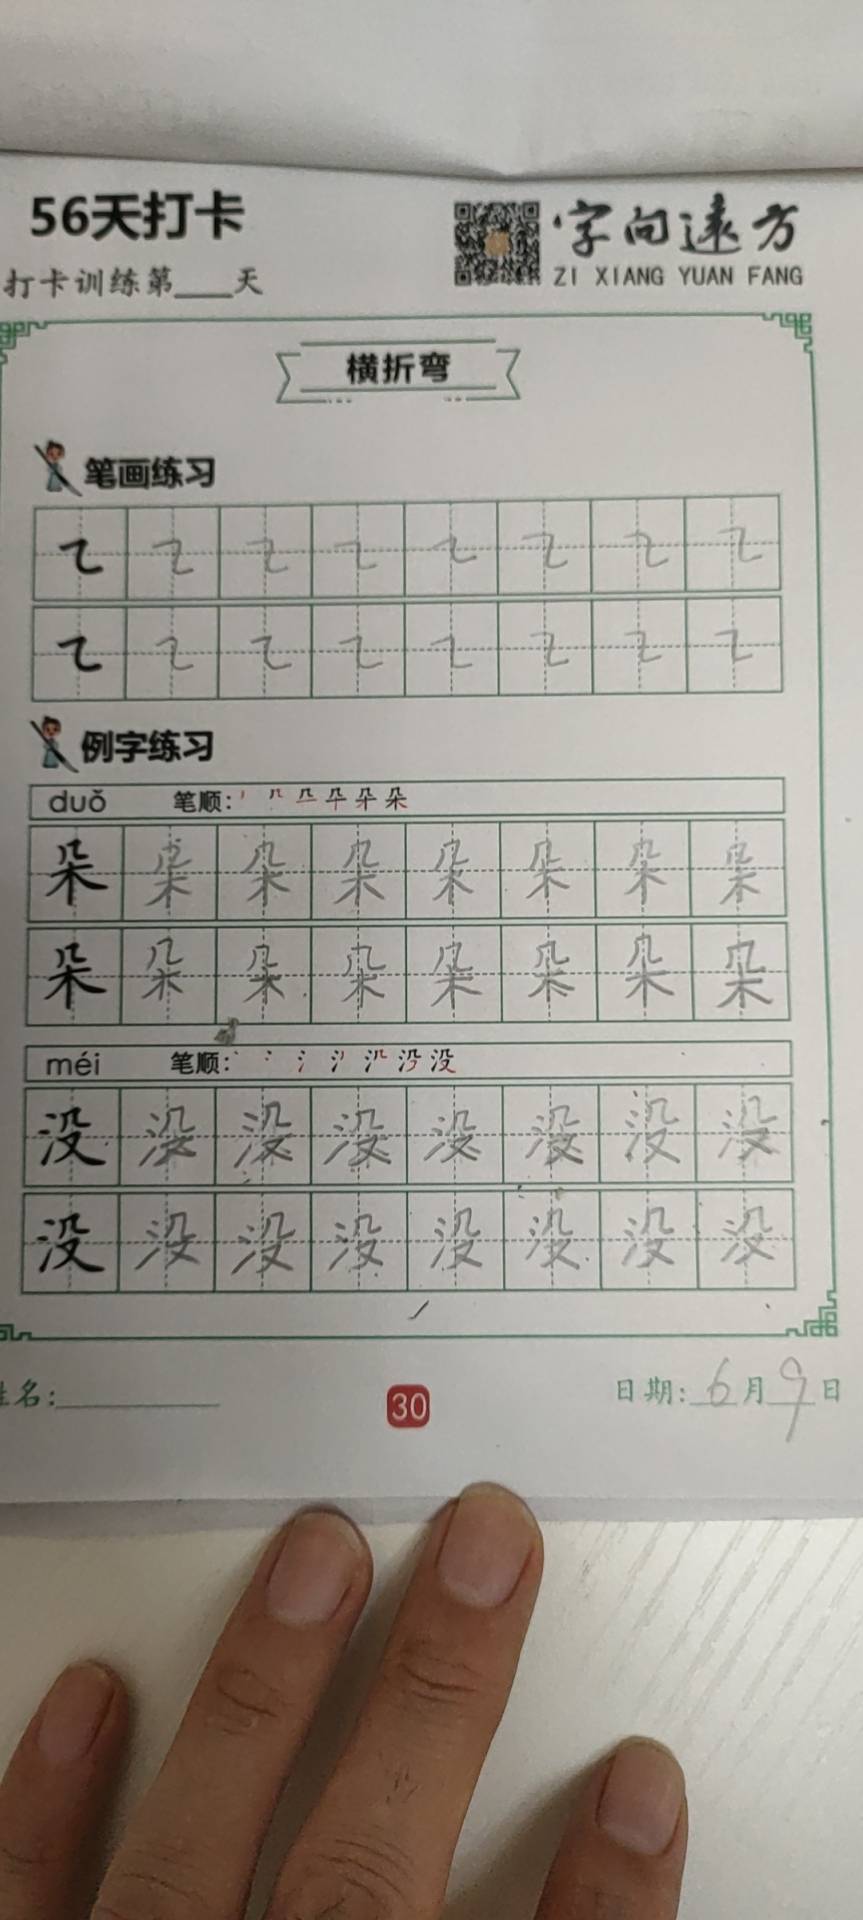 56天打卡
字向远方
打卡训练第___天
ZI XIANG YUAN FANG
横折弯
笔画练习
㇍ ㇍ ㇍ ㇍ ㇍ ㇍ ㇍ ㇍
㇍ ㇍ ㇍ ㇍ ㇍ ㇍ ㇍ ㇍
例字练习
duǒ 笔顺: 朵
朵 朵 朵 朵 朵 朵 朵 朵
朵 朵 朵 朵 朵 朵 朵 朵
méi 笔顺: 没
没 没 没 没 没 没 没 没
没 没 没 没 没 没 没 没
姓名:___ 30 日期: 6 月 9 日